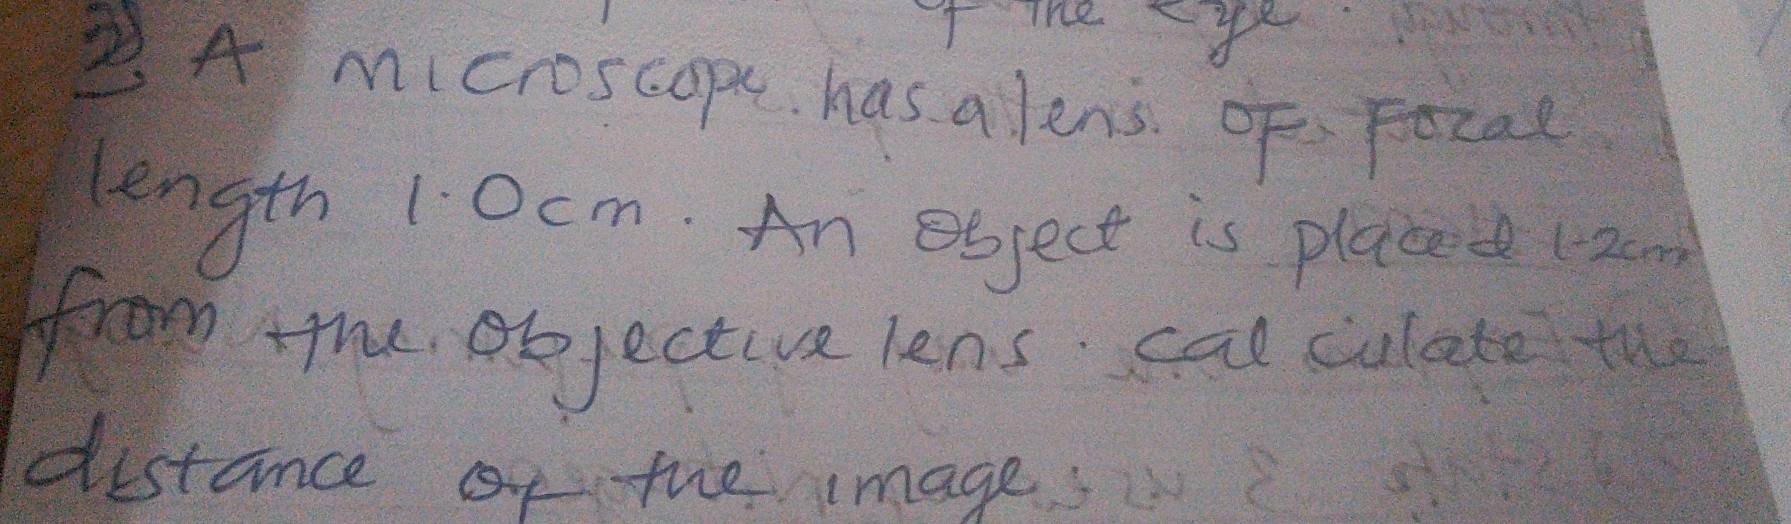 of the eye.
2) A microscope has a lens of Focal
length 1.0cm. An object is placed 1.2cm
from the objective lens. calculate the
distance of the image.